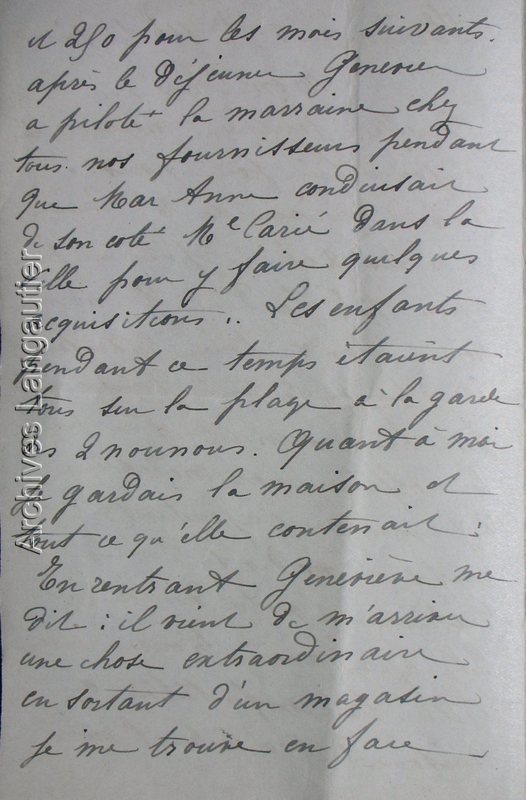 et 250 pour les mois suivants.
après le Déjeuner Geneviev
a piloté la marraine chez
tous nos fournisseurs pendant
que Mar Anne conduisait
de son coté Me Carié dans la
ville pour y faire quelques
acquisitions.. Les enfants
pendant ce temps étaient
tous sur la plage à la garde
des 2 nounous. Quant à moi
je gardais la maison et
tout ce qu'elle contenait.
En rentrant Geneviève me
dit : il vient de m'arriver
une chose extraordinaire
en sortant d'un magasin
je me trouve en face
Archives Langautier